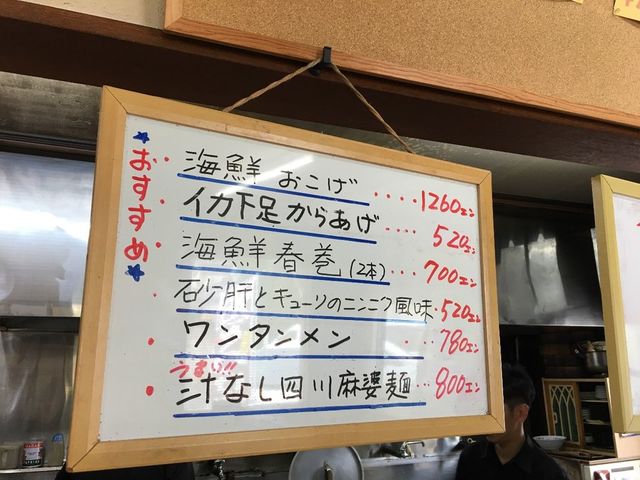 ★おすすめ★
海鮮 おこげ ....1260エン
イカ下足からあげ ....520エン
海鮮春巻(2本)...700エン
砂肝とキューリのニンニク風味.520エン
ワンタンメン 780エン
うまい!!
汁なし四川麻婆麺...800エン